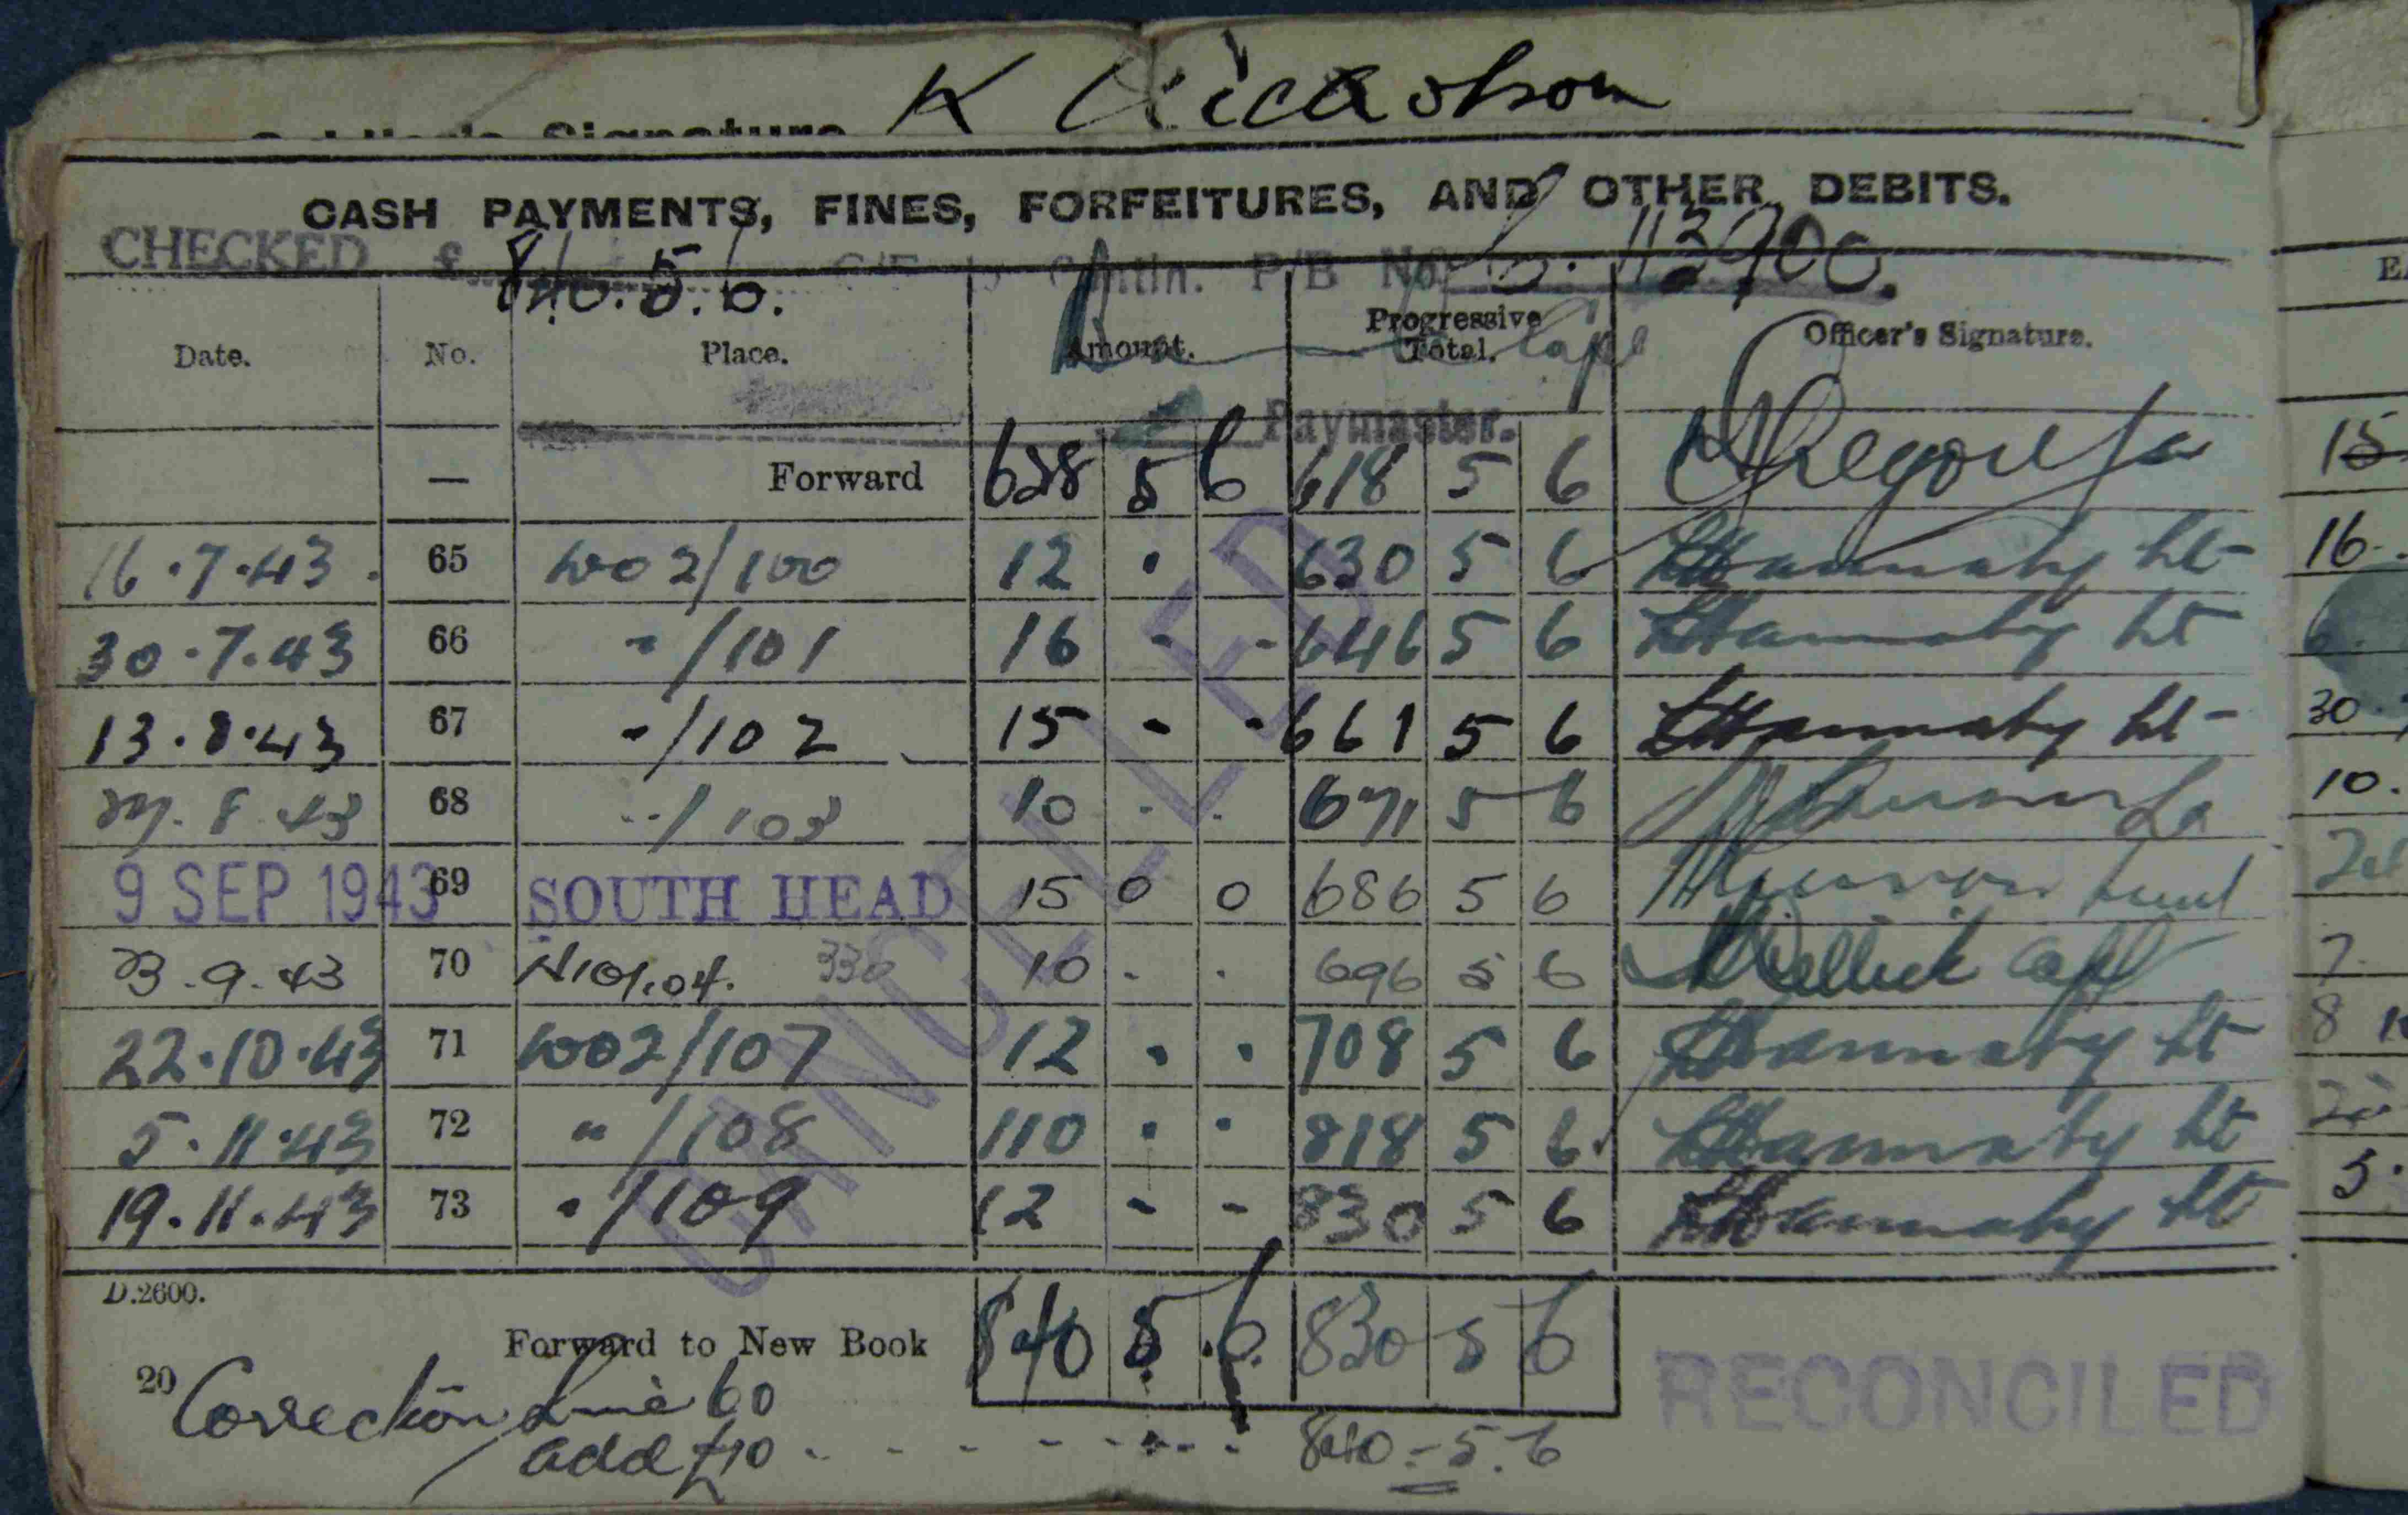 Signature K Nicholson
CASH PAYMENTS, FINES, FORFEITURES, AND OTHER DEBITS.
CHECKED £ 840.5.6. P/B No. 113900.
Date. No. Place. Amount. Progressive Total. Officer's Signature.
Capt
Paymaster.
— Forward 628 5 6 618 5 6
16.7.43. 65 W02/100 12 . 630 5 6 Lt
30.7.43 66 "/101 16 - - 646 5 6 Lt
13.8.43 67 "/102 15 - - 661 5 6 Lt
27.8.43 68 "/103 10 . . 671 5 6
9 SEP 1943 69 SOUTH HEAD 15 0 0 686 5 6
23.9.43 70 330 10 . . 696 5 6 Capt
22.10.43 71 W02/107 12 . . 708 5 6 Lt
5.11.43 72 "/108 110 . . 818 5 6 Lt
19.11.43 73 "/109 12 - - 830 5 6 Lt
CANCELLED
D.2600.
Forward to New Book 840 5.6. 830 5 6
RECONCILED
20 Correction Line 60
add £10 - - - - - - 840-5.6
15
16.
6.
30
10.
7.
8
5.